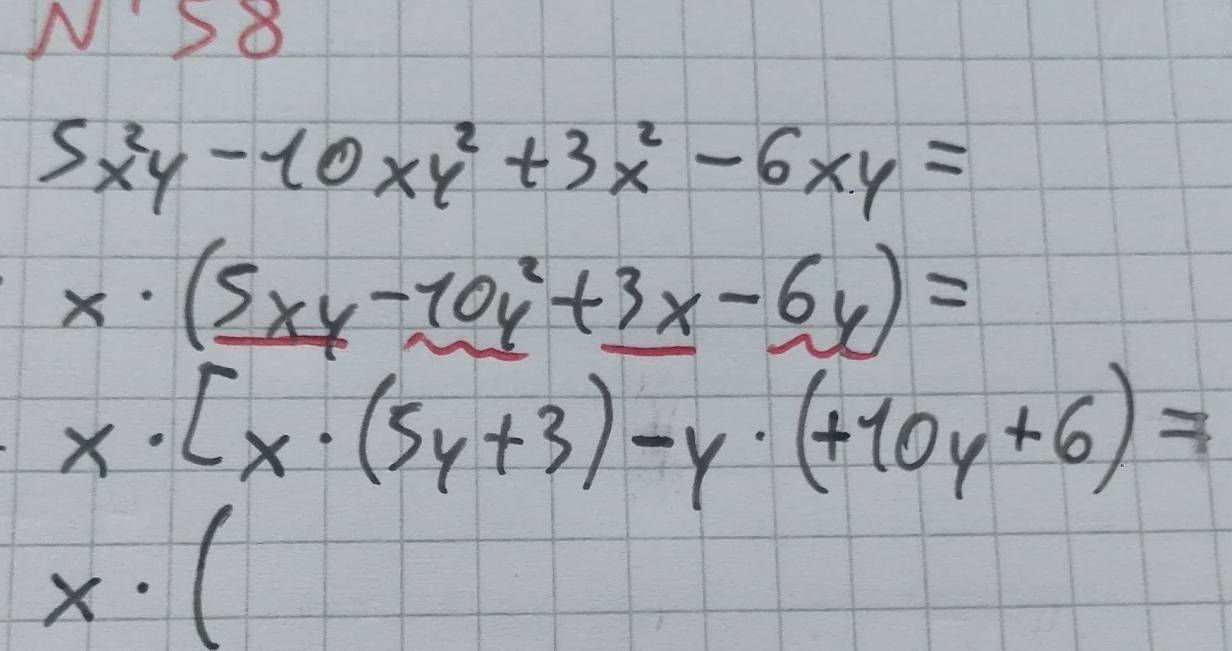 N° 58
5x²y - 10xy² + 3x² - 6xy =
x · (5xy - 10y² + 3x - 6y) =
x · [x · (5y + 3) - y · (+10y + 6) =
x · (